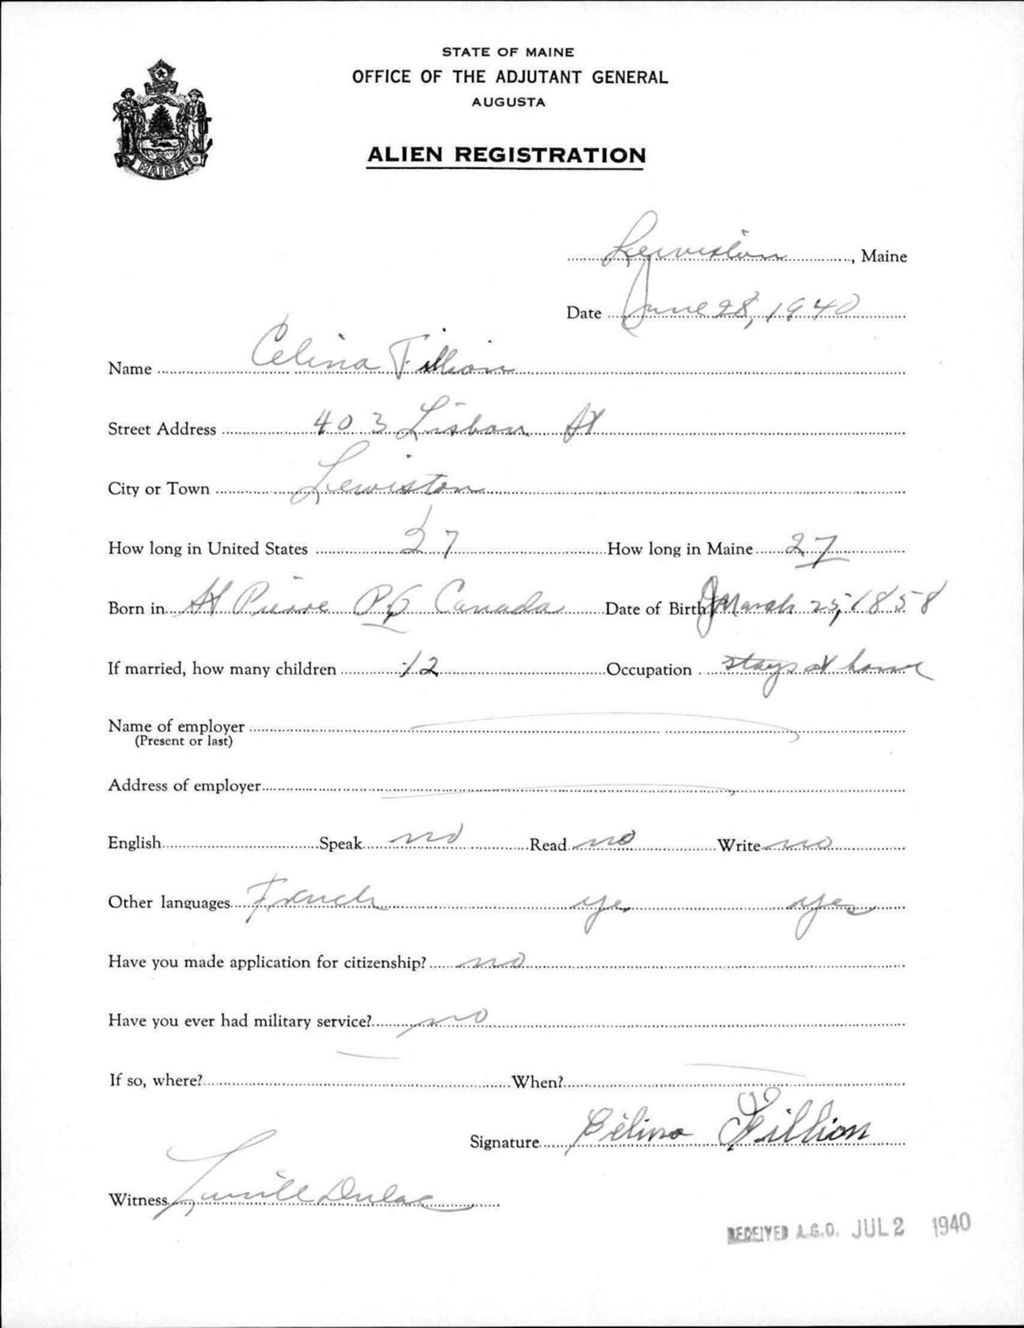 STATE OF MAINE
OFFICE OF THE ADJUTANT GENERAL
AUGUSTA
ALIEN REGISTRATION
MAINE
Lewiston, Maine
Date June 28, 1940
Name Celina Fillion
Street Address 403 Lisbon St
City or Town Lewiston
How long in United States 27 How long in Maine 27
Born in St Pierre P.Q Canada Date of Birth March 25, 1858
If married, how many children 12 Occupation stays at home
Name of employer
(Present or last)
Address of employer
English Speak no Read no Write no
Other languages French yes yes
Have you made application for citizenship? no
Have you ever had military service? no
If so, where? When?
Signature Célina Fillion
Witness Dulac
RECEIVED A.G.O. JUL 2 1940